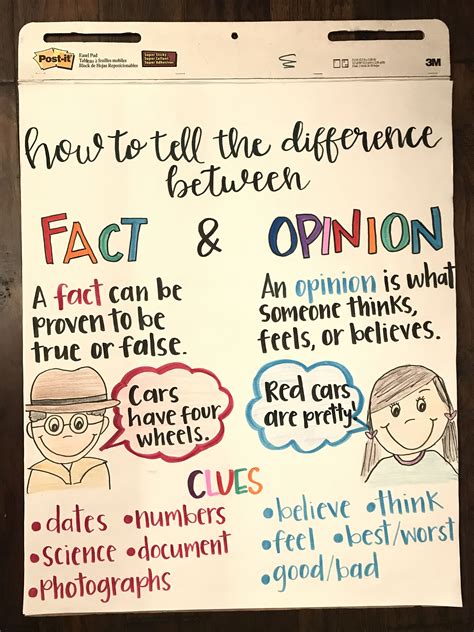 Post-it
Easel Pad
Tableau à feuilles mobiles
Block de Hojas Reposicionables
Super Sticky
3M
how to tell the difference
between
FACT & OPINION
A fact can be
proven to be
true or false.
An opinion is what
someone thinks,
feels, or believes.
Cars
have four
wheels.
Red cars
are pretty.
CLUES
•dates •numbers
•science •document
•photographs
•believe •think
•feel •best/worst
•good/bad